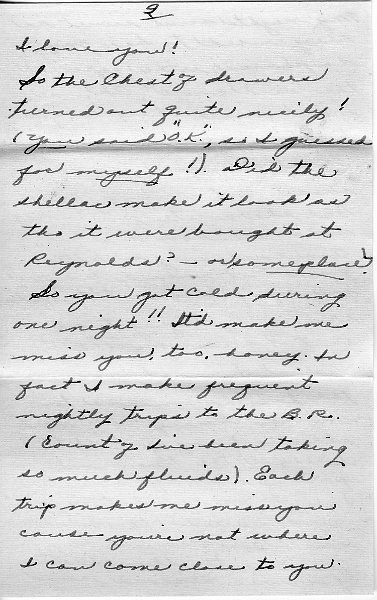 9
I love you!
So the Chest of drawers
turned out quite nicely!
(You said "O.K.", so I guessed
for myself!). Did the
shellac make it look as
tho it were bought at
Reynolds? — or someplace?
So you got cold during
one night!! It'd make me
miss you, too, honey. In
fact I make frequent
nightly trips to the B.R.
(Count of I've been taking
so much fluids). Each
trip makes me miss you
cause you're not where
I can come close to you.